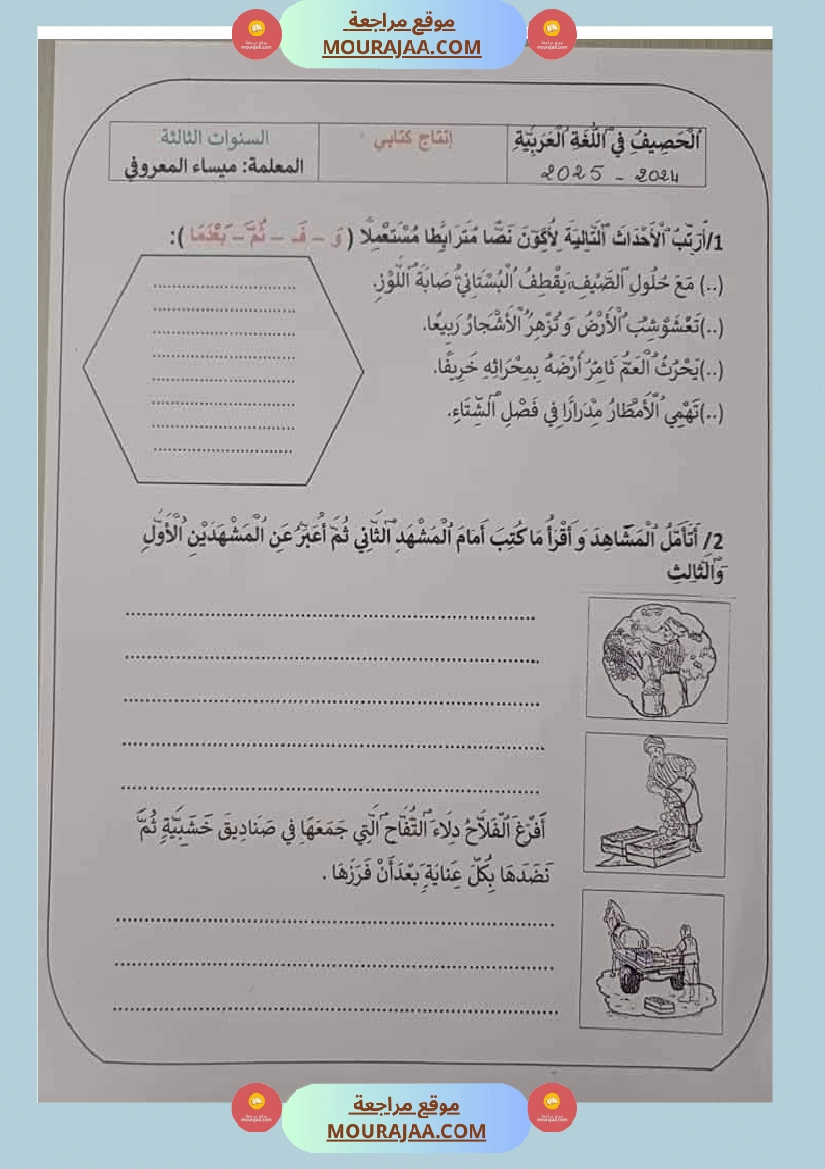 موقع مراجعة
MOURAJAA.COM
الْحَصِيفُ فِي اللُّغَةِ الْعَرَبِيَّةِ
2024 - 2025
إنتاج كتابي
السنوات الثالثة
المعلمة: ميساء المعروفي
1/أُرَتِّبُ الْأَحْدَاثَ التَّالِيَةَ لِأُكَوِّنَ نَصًّا مُتَرَابِطًا مُسْتَعْمِلًا ( وَ – فَـ – ثُمَّ – بَعْدَمَا ):
(..) مَعَ حُلُولِ الصَّيْفِ يَقْطِفُ الْبُسْتَانِيُّ صَابَةَ اللَّوْزِ.
(..)تَعْشَوْشِبُ الْأَرْضُ وَ تُزْهِرُ الْأَشْجَارُ رَبِيعًا.
(..)يَحْرُثُ الْعَمُّ ثَامِرُ أَرْضَهُ بِمِحْرَاثِهِ خَرِيفًا.
(..)تَهْمِي الْأَمْطَارُ مِدْرَارًا فِي فَصْلِ الشِّتَاءِ.
2/ أَتَأَمَّلُ الْمَشَاهِدَ وَ أَقْرَأُ مَا كُتِبَ أَمَامَ الْمَشْهَدِ الثَّانِي ثُمَّ أُعَبِّرُ عَنِ الْمَشْهَدَيْنِ الْأَوَّلِ
وَالثَّالِثِ
أَفْرَغَ الْفَلَّاحُ دِلَاءَ التُّفَّاحِ الَّتِي جَمَعَهَا فِي صَنَادِيقَ خَشَبِيَّةٍ ثُمَّ
نَضَدَهَا بِكُلِّ عِنَايَةٍ بَعْدَ أَنْ فَرَزَهَا .
موقع مراجعة
MOURAJAA.COM